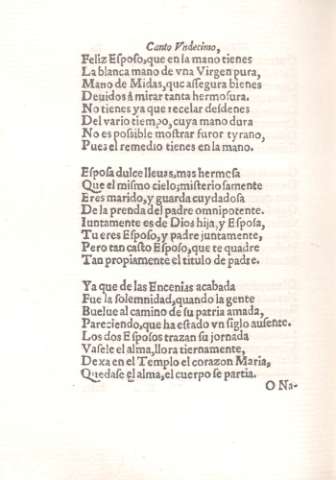 Canto Vndecimo,
Feliz Esposo, que en la mano tienes
La blanca mano de vna Virgen pura,
Mano de Midas, que assegura bienes
Deuidos á mirar tanta hermosura.
No tienes ya que recelar desdenes
Del vario tiempo, cuya mano dura
No es possible mostrar furor tyrano,
Pues el remedio tienes en la mano.
Esposa dulce lleuas, mas hermosa
Que el mismo cielo; misteriosamente
Eres marido, y guarda cuydadosa
De la prenda del padre omnipotente.
Iuntamente es de Dios hija, y Esposa,
Tu eres Esposo, y padre juntamente,
Pero tan casto Esposo, que te quadre
Tan propiamente el titulo de padre.
Ya que de las Encenias acabada
Fue la solemnidad, quando la gente
Buelue al camino de su patria amada,
Pareziendo, que ha estado vn siglo ausente.
Los dos Esposos trazan su jornada
Vasele el alma, llora tiernamente,
Dexa en el Templo el corazon Maria,
Quedase el alma, el cuerpo se partia.
O Na-